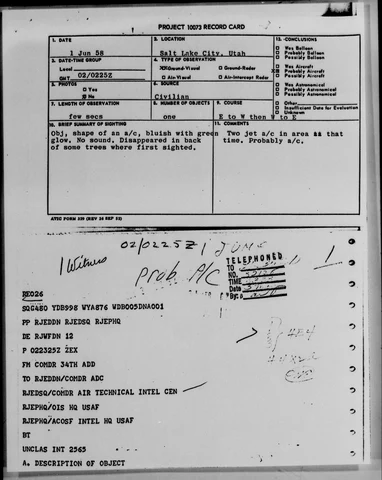 PROJECT 10073 RECORD CARD
1. DATE
1 Jun 58
2. LOCATION
Salt Lake City, Utah
12. CONCLUSIONS
Was Balloon
Probably Balloon
Possibly Balloon
3. DATE-TIME GROUP
Local
GMT 02/0225Z
4. TYPE OF OBSERVATION
XX Ground-Visual
Ground-Radar
Air-Visual
Air-Intercept Radar
Was Aircraft
X Probably Aircraft
Possibly Aircraft
Was Astronomical
Probably Astronomical
Possibly Astronomical
5. PHOTOS
Yes
No
6. SOURCE
Civilian
7. LENGTH OF OBSERVATION
few secs
8. NUMBER OF OBJECTS
one
9. COURSE
E to W then W to E
Other
Insufficient Data for Evaluation
Unknown
10. BRIEF SUMMARY OF SIGHTING
Obj, shape of an a/c, bluish with green
glow. No sound. Disappeared in back
of some trees where first sighted.
11. COMMENTS
Two jet a/c in area at that
time. Probably a/c.
ATIC FORM 329 (REV 26 SEP 52)
02/0225Z 1 June
1 Witness
Prob A/C
TELEPHONED
TO
NO.
TIME
Date
By:
1
RE026
SQG480 YDB998 WYA876 WDB005DNA001
PP RJEDDN RJEDSQ RJEPHQ
DE RJWFDN 12
P 022325Z ZEX
FM COMDR 34TH ADD
TO RJEDDN/COMDR ADC
RJEDSQ/COMDR AIR TECHNICAL INTEL CEN
RJEPHQ/OIS HQ USAF
RJEPHQ/ACOSF INTEL HQ USAF
BT
UNCLAS INT 2565
A. DESCRIPTION OF OBJECT